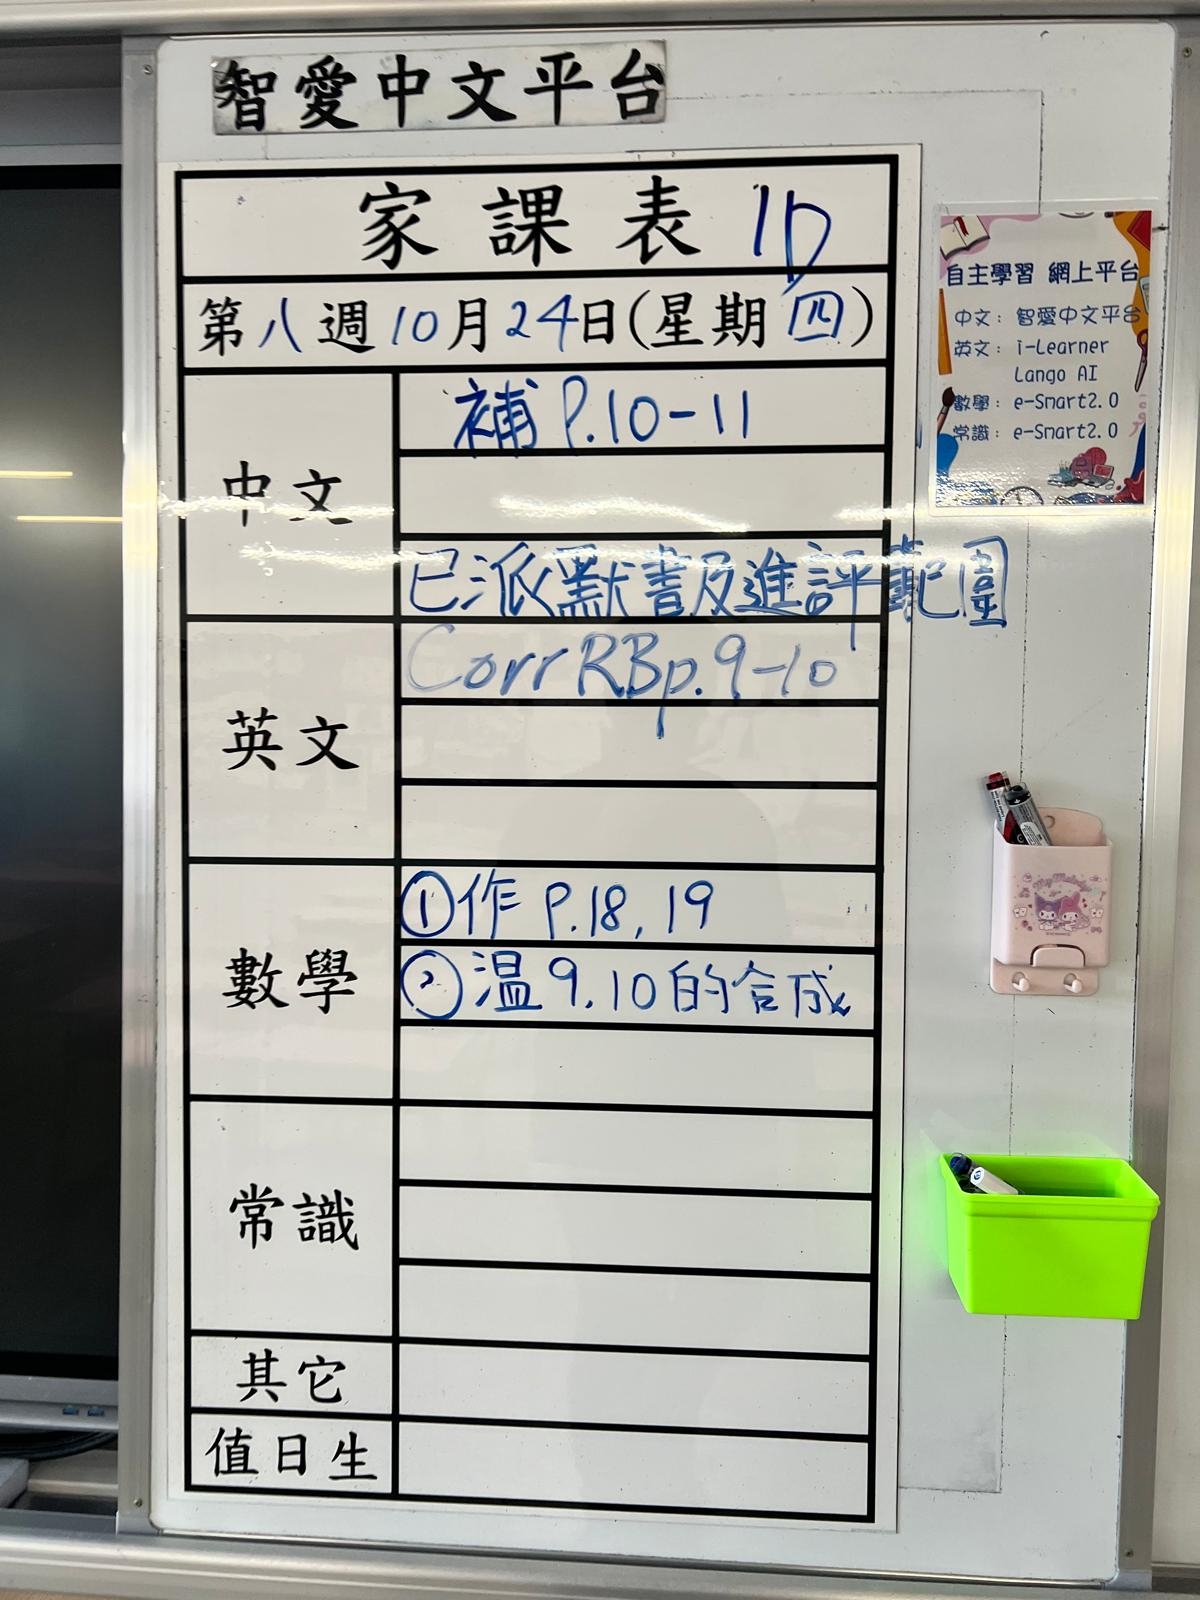 智愛中文平台
家課表 1D
第八週10月24日(星期四)
中文
補 P.10-11
已派默書及進評範圍
英文
Corr RB p.9-10
數學
①作 P.18, 19
②溫 9.10的合成
常識
其它
值日生
自主學習 網上平台
中文：智愛中文平台
英文：i-Learner
Lango AI
數學：e-Smart2.0
常識：e-Smart2.0